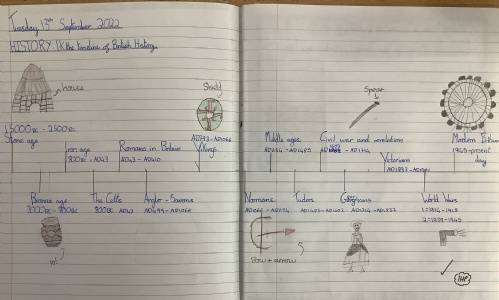 Tuesday 13th September 2022
HISTORY: IK the timeline of British History.
house
Shield
Spear
15000BC - 2500BC
Stone age
Iron age
800BC - AD43
Romans in Britain
AD43 - AD410
AD793 - AD1066
Vikings
Middle ages
AD1154 - AD1485
Civil war and revolutions
- AD1714
Victorians
AD1837 - AD1901
Modern Britain
1945 - present
day
Bronze age
The Celts
AD43
Anglo - Saxons
AD449 - AD1066
Normans
AD1066 - AD1154
Tudors
Georgians
AD1714 - AD1837
World Wars
1=1914-1918
2=1939-1945
Bow + arrow